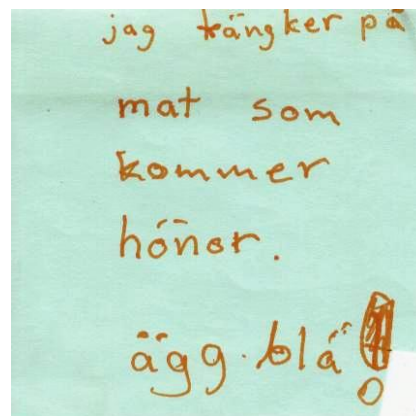 jag tängker på
mat som
kommer
hönor.
ägg. blä!